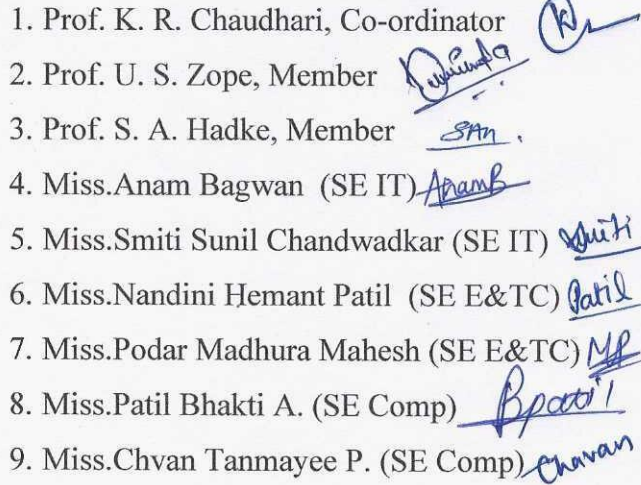 1. Prof. K. R. Chaudhari, Co-ordinator
2. Prof. U. S. Zope, Member
3. Prof. S. A. Hadke, Member SAH.
4. Miss.Anam Bagwan (SE IT) AnamB
5. Miss.Smiti Sunil Chandwadkar (SE IT) Smiti
6. Miss.Nandini Hemant Patil (SE E&TC) Patil
7. Miss.Podar Madhura Mahesh (SE E&TC) MP
8. Miss.Patil Bhakti A. (SE Comp) Bpatil
9. Miss.Chvan Tanmayee P. (SE Comp) Chavan